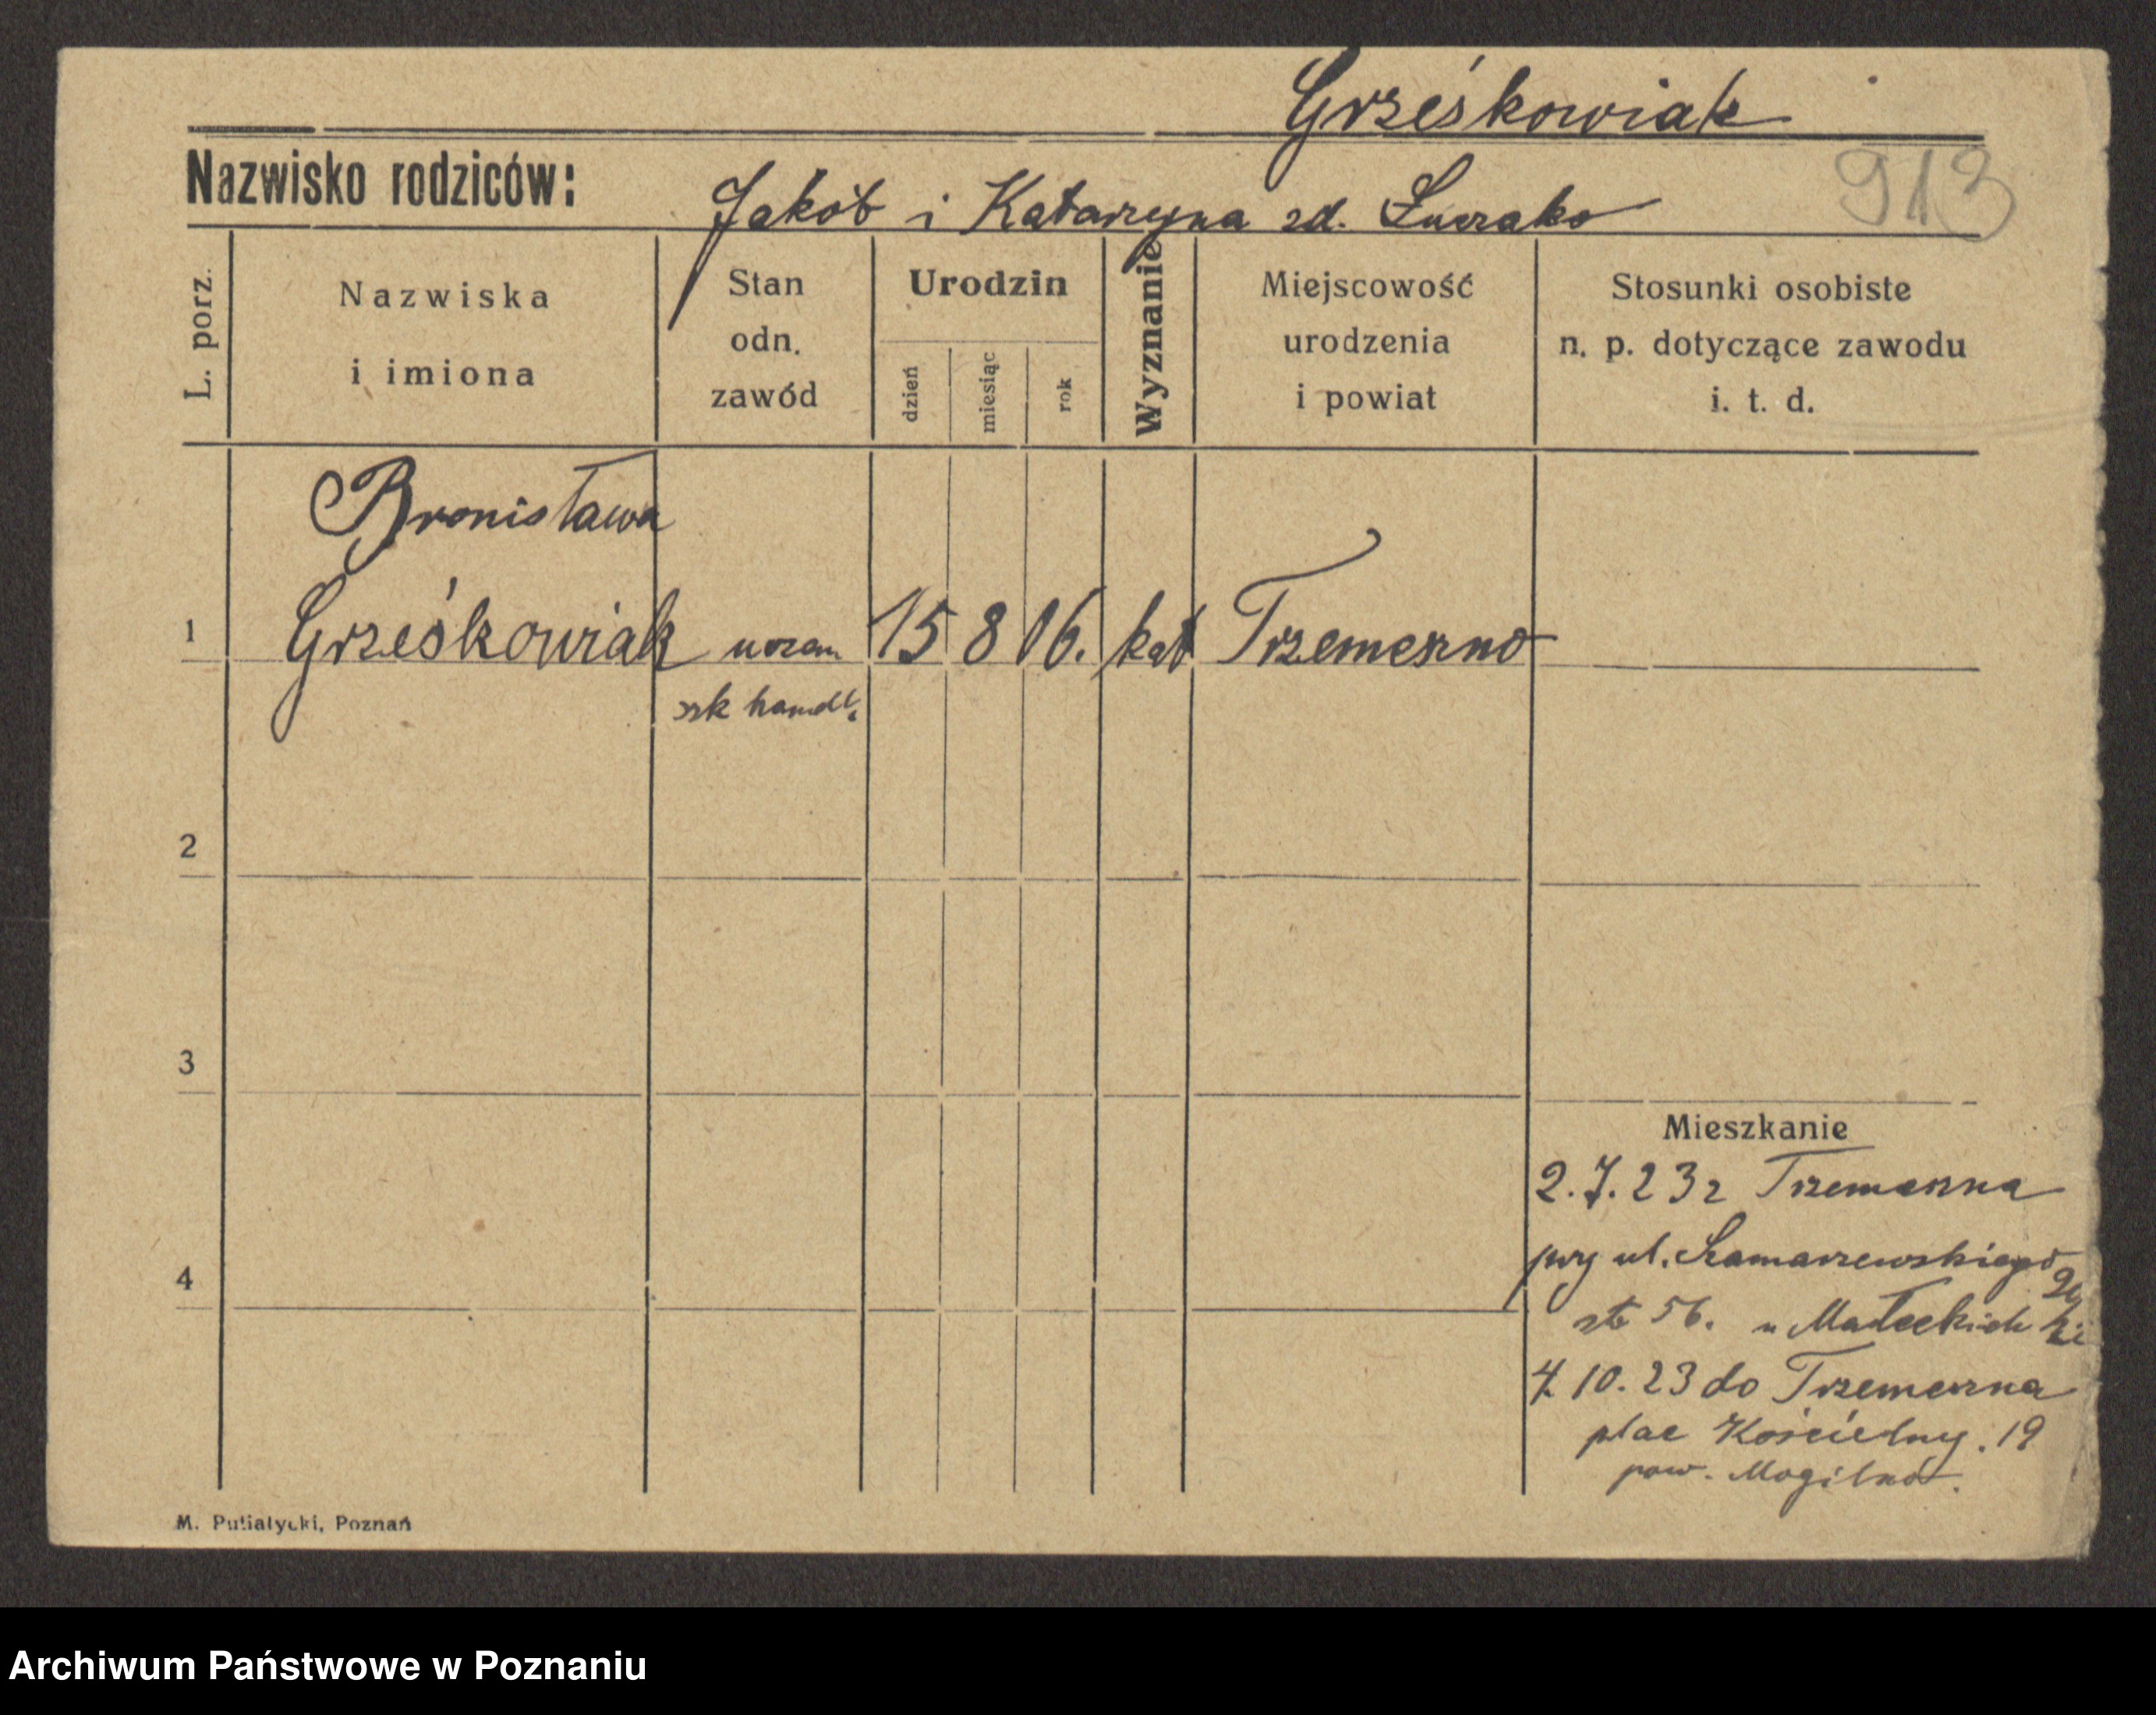 Grześkowiak
913
Nazwisko rodziców:
Jakób i Katarzyna zd.
L. porz.
Nazwiska
i imiona
Stan
odn.
zawód
Urodzin
dzień
miesiąc
rok
Wyznanie
Miejscowość
urodzenia
i powiat
Stosunki osobiste
n. p. dotyczące zawodu
i. t. d.
Bronisława
1 Grześkowiak uczen 15 8 06. kat Trzemeszno
szk handl.
2
3
4
Mieszkanie
2.7.23 z Trzemeszna
przy ul. Szamarzewskiego
56. u Małeckich
4 10.23 do Trzemeszna
plac Kościelny. 19
pow. Mogilno.
M. Putiatycki, Poznań
Archiwum Państwowe w Poznaniu